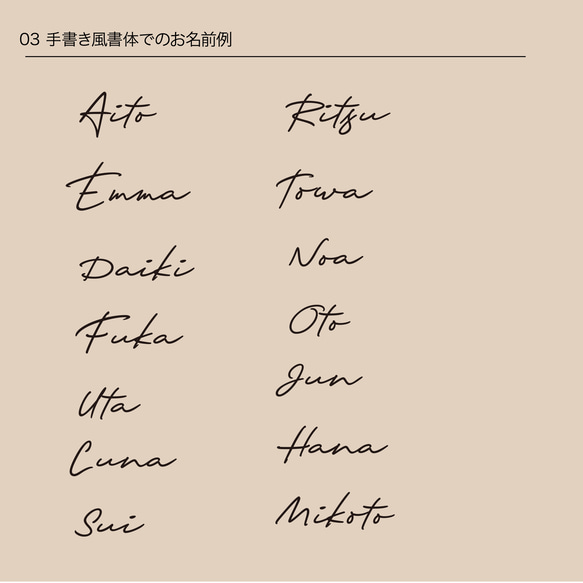 03 手書き風書体でのお名前例
Aito
Emma
Daiki
Fuka
Uta
Luna
Sui
Ritsu
Towa
Noa
Oto
Jun
Hana
Mikoto